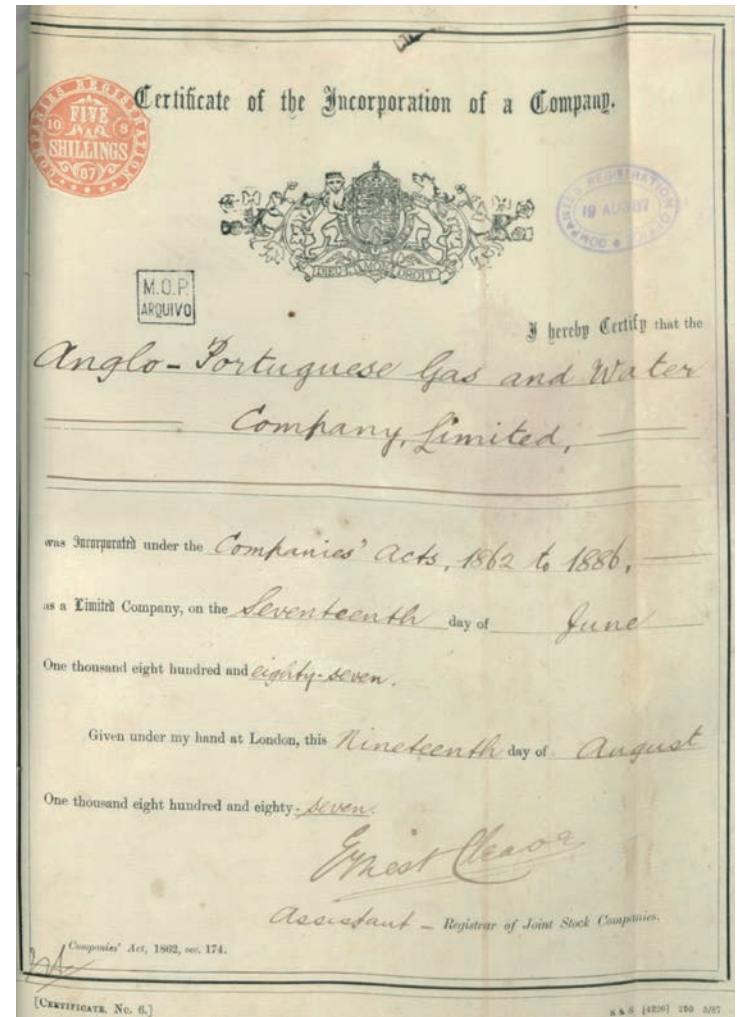 Certificate of the Incorporation of a Company.
COMPANIES REGISTRATION
FIVE
SHILLINGS
10 8
87
COMPANIES REGISTRATION OFFICE
19 AUG 87
DIEU ET MON DROIT
M.O.P.
ARQUIVO
I hereby Certify that the
Anglo-Portuguese Gas and Water
Company, Limited,
was Incorporated under the Companies' Acts, 1862 to 1886,
as a Limited Company, on the Seventeenth day of June
One thousand eight hundred and eighty-seven.
Given under my hand at London, this Nineteenth day of August
One thousand eight hundred and eighty-seven.
Ernest Cleave
Assistant - Registrar of Joint Stock Companies.
Companies' Act, 1862, sec. 174.
[CERTIFICATE. No. 6.]
S & S [4226] 250 3/87